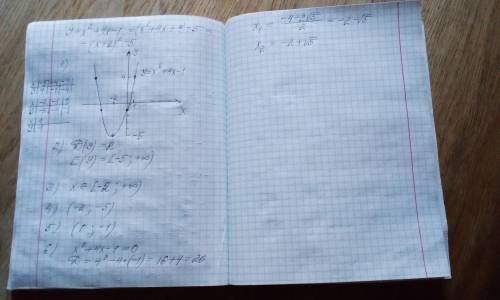 y = x² + 4x - 1 = (x² + 4x + 4) - 5 =
= (x + 2)² - 5
1)
y = x² + 4x - 1
-2
x
-5
2) D(y) = R
E(y) = [-5; +∞)
3) x ∈ [-2; +∞)
4) (-2; -5)
5) (0; -1)
6) x² + 4x - 1 = 0
D = 4² - 4·(-1) = 16 + 4 = 20
x₁ = (-4 - 2√5)/2 = -2 - √5
x₂ = -2 + √5